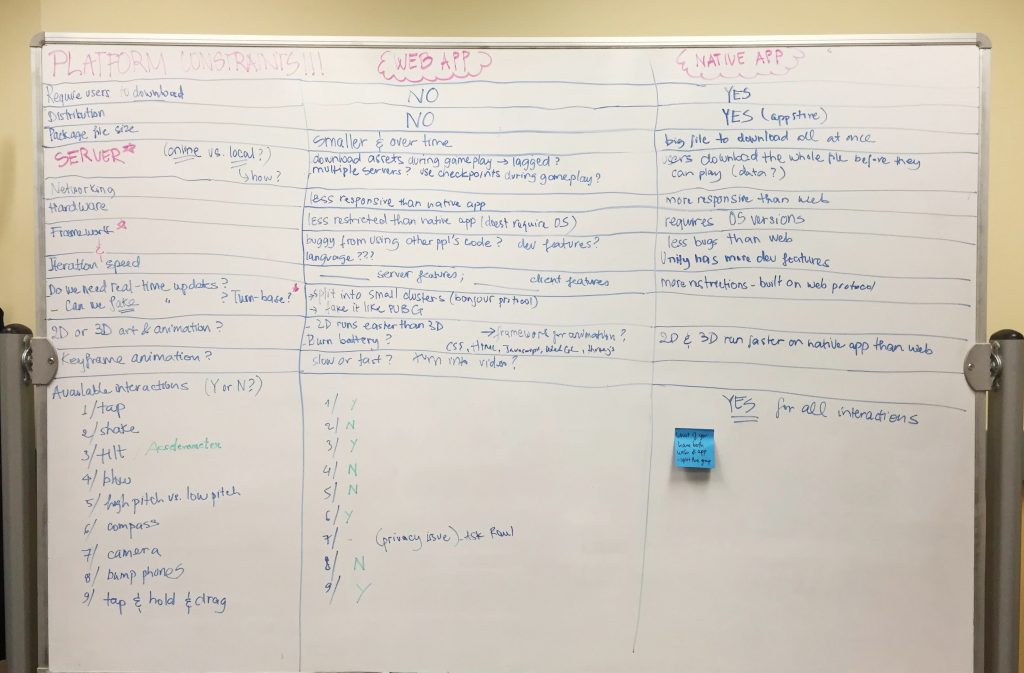 PLATFORM CONSTRAINTS!!! WEB APP NATIVE APP
Require users to download NO YES
Distribution NO YES (appstore)
Package file size smaller & over time big file to download all at once
SERVER* (online vs. local?) download assets during gameplay → lagged? users download the whole file before they
↳ how? multiple servers? use checkpoints during gameplay? can play (data?)
Networking less responsive than native app more responsive than web
Hardware less restricted than native app (doesn't require OS) requires OS versions
Framework* buggy from using other ppl's code? dev features? less bugs than web
& language ??? Unity has more dev features
Iteration speed server features; client features more restrictions - built on web protocol
Do we need real-time updates?
- Can we fake " ? Turn-base?* → split into small clusters (bonjour protocol)
→ fake it like PUBG
2D or 3D art & animation? - 2D runs easier than 3D → framework for animation? 2D & 3D run faster on native app than web
Burn battery? CSS, HTML, Javascript, WebGL, threejs
Keyframe animation? slow or fast? turn into video?
Available interactions (Y or N?) YES for all interactions
1/ tap 1/ Y
2/ shake 2/ N
3/ tilt Accelerometer 3/ Y
4/ blow 4/ N
5/ high pitch vs. low pitch 5/ N
6/ compass 6/ Y
7/ camera 7/ - (privacy issue) - ask
8/ bump phones 8/ N
9/ tap & hold & drag 9/ Y
what if you
have both
web & app